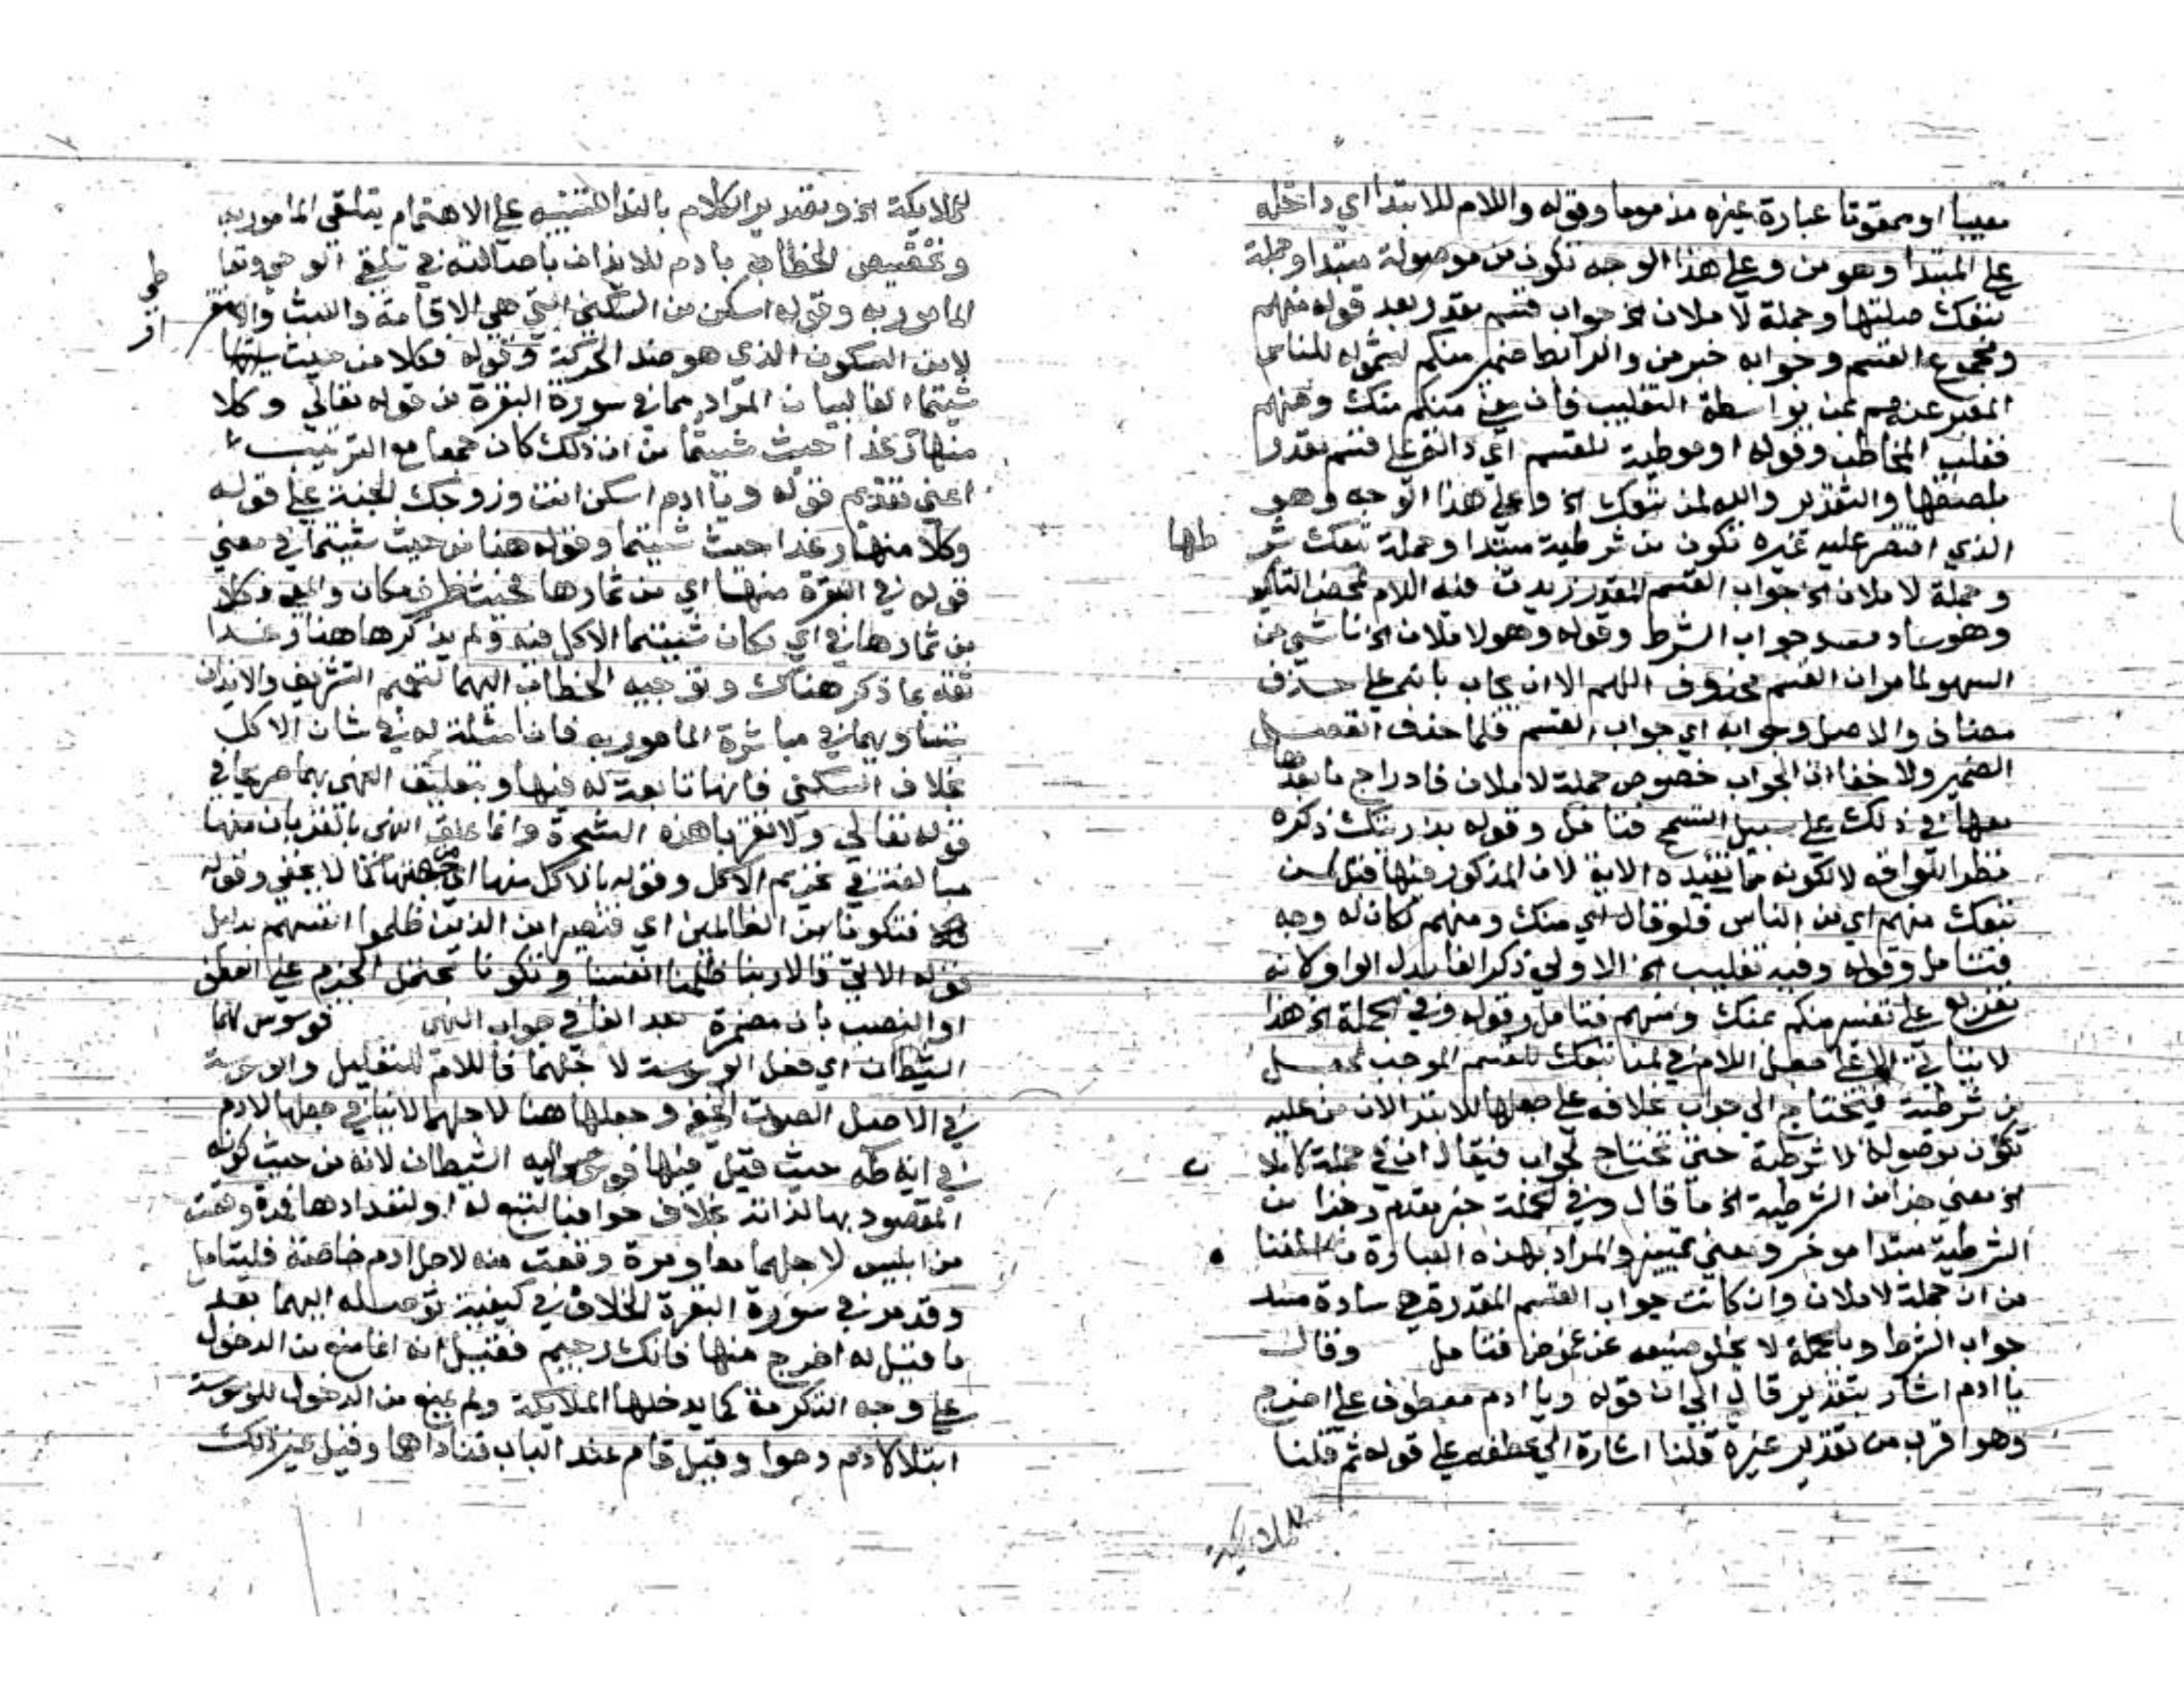 معيبا او ممقوتا عبارة غيره مذموما وقوله واللام للابتدا اي داخله
علي المبتدا وهو من وعلي هذا الوجه تكون من موصولة مبتدا وجملة
تبعك صلتها وجملة لاملان الخ جواب قسم مقدر بعد قوله منهم
ومجموع القسم وجوابه خبر من والرابط ضمير منكم لشموله للناس
المعبر عنهم بمن بواسطة التغليب فان معني منكم منك ومنهم
فغلب المخاطب وقوله او موطية للقسم اي دالة علي قسم مقدر
بلصقها والتقدير والله لمن تبعك الخ وعلي هذا الوجه وهو
الذي اقتصر عليه غيره تكون من شرطية مبتدا وجملة تبعك شر
طها
وجملة لاملان الخ جواب القسم المقدر زيدت فيه اللام لمحض التاكيد
وهو ساد مسد جواب الشرط وقوله وهو لاملان الخ ناشي عن
السهو لما مر ان القسم محذوف اللهم الا ان يجاب بانه علي حذف
مضاف والاصل وجوابه اي جواب القسم فلما حذف انفصل
الضمير ولا خفا ان الجواب خصوص جملة لاملان فادراج ما بعدها
معها في ذلك علي سبيل التسمح فتامل وقوله بذريتك ذكره
نظرا للواقع لا لكونه مما تفيده الاية لان المذكور فيها قبل لمن
تبعك منهم اي من الناس فلو قال اي منك ومنهم لكان له وجه
فتامل وقوله وفيه تغليب الخ الاولي ذكر الفا بدل الواو لانه
تفريع علي تفسير منكم بمنك ومنهم فتامل وقوله وفي الجملة الخ هذا
لا يتاتي الا علي جعل اللام في لمن تبعك للقسم الموجب لجعل
من شرطية فيحتاج الي جواب بخلافه علي جعلها للابتدا لان من عليه
تكون موصولة لا شرطية حتي تحتاج لجواب فيقال ان في جملة لاملان
الخ معني جزا من الشرطية الخ ما قال وفي الجملة خبر مقدم وجزا من
الشرطية مبتدا موخر ومعني تمييز والمراد بهذه العبارة ما اسلفنا
من ان جملة لاملان وان كانت جواب القسم المقدر هي سادة مسد
جواب الشرط وبالجملة لا يخلو صنيعه عن غموض فتامل وقال
يا ادم اشار بتقدير قال الي ان قوله ويا ادم معطوف علي اخرج
وهو اقرب من تقدير غيره قلنا اشارة الي عطفه علي قوله ثم قلنا
للملايكة
للملايكة الخ وتصدير الكلام بالندا للتنبيه علي الاهتمام بتلقي المامور به
وتخصيص الخطاب بادم للايذان باصالته في تلقي الوحي وتعا
طي
المامور به وقوله اسكن من السكني التي هي الاقامة واللبث والاستقر
ار
لا من السكون الذي هو ضد الحركة وقوله فكلا من حيث
شيتما الفا لبيان المراد مما في سورة البقرة من قوله تعالي وكلا
منها رغدا حيث شيتما من ان ذلك كان جمعا مع الترتيب
اعني تقديم قوله ويا ادم اسكن انت وزوجك الجنة علي قوله
وكلا منها رغدا حيث شيتما وقوله هنا من حيث شيتما في معني
قوله في البقرة منها اي من ثمارها حيث ظرف مكان والمعني فكلا
من ثمارها في اي مكان شيتما الاكل فيه ولم يذكرها هنا رغدا
ثقة بما ذكر هناك وتوجيه الخطاب اليهما لتعميم التشريف والايذان
بتساويهما في مباشرة المامور به فانها مثلة له في شان الاكل
بخلاف السكني فانها تابعة له فيها وبتعليق النهي بهما صريحا في
قوله تعالي ولا تقربا هذه الشجرة وانما علق النهي بالقربان منها
مبالغة في تحريم الاكل وقوله بالاكل منها اي من جنسها كما لا يخفي وقوله
فتكونا من الظالمين اي فتصيرا من الذين ظلموا انفسهم بدليل
قوله الاتي قالا ربنا ظلمنا انفسنا وتكونا تحتمل الجزم علي العطف
او النصب بان مضمرة بعد الفا في جواب النهي فوسوس لهما
الشيطان اي فعل الوسوسة لاجلهما فاللام للتعليل والوسوسة
في الاصل الصوت الخفي وجعلها هنا لاجلهما لا ينافي جعلها لادم
في اية طه حيث قيل فيها فوسوس اليه الشيطان لانه من حيث كونه
المقصود بها لذاته بخلاف حوا فبالتبع له او لتعددها فمرة وقعت
من ابليس لاجلهما معا ومرة وقعت منه لاجل ادم خاصة فليتامل
وقد مر في سورة البقرة الخلاف في كيفية توصله اليهما بعد
ما قيل له اخرج منها فانك رجيم فقيل انه انما منع من الدخول
علي وجه التكرمة كما يدخلها الملايكة ولم يمنع من الدخول للوسوسة
ابتلا لادم وحوا وقيل قام عند الباب فناداهما وقيل غير ذلك